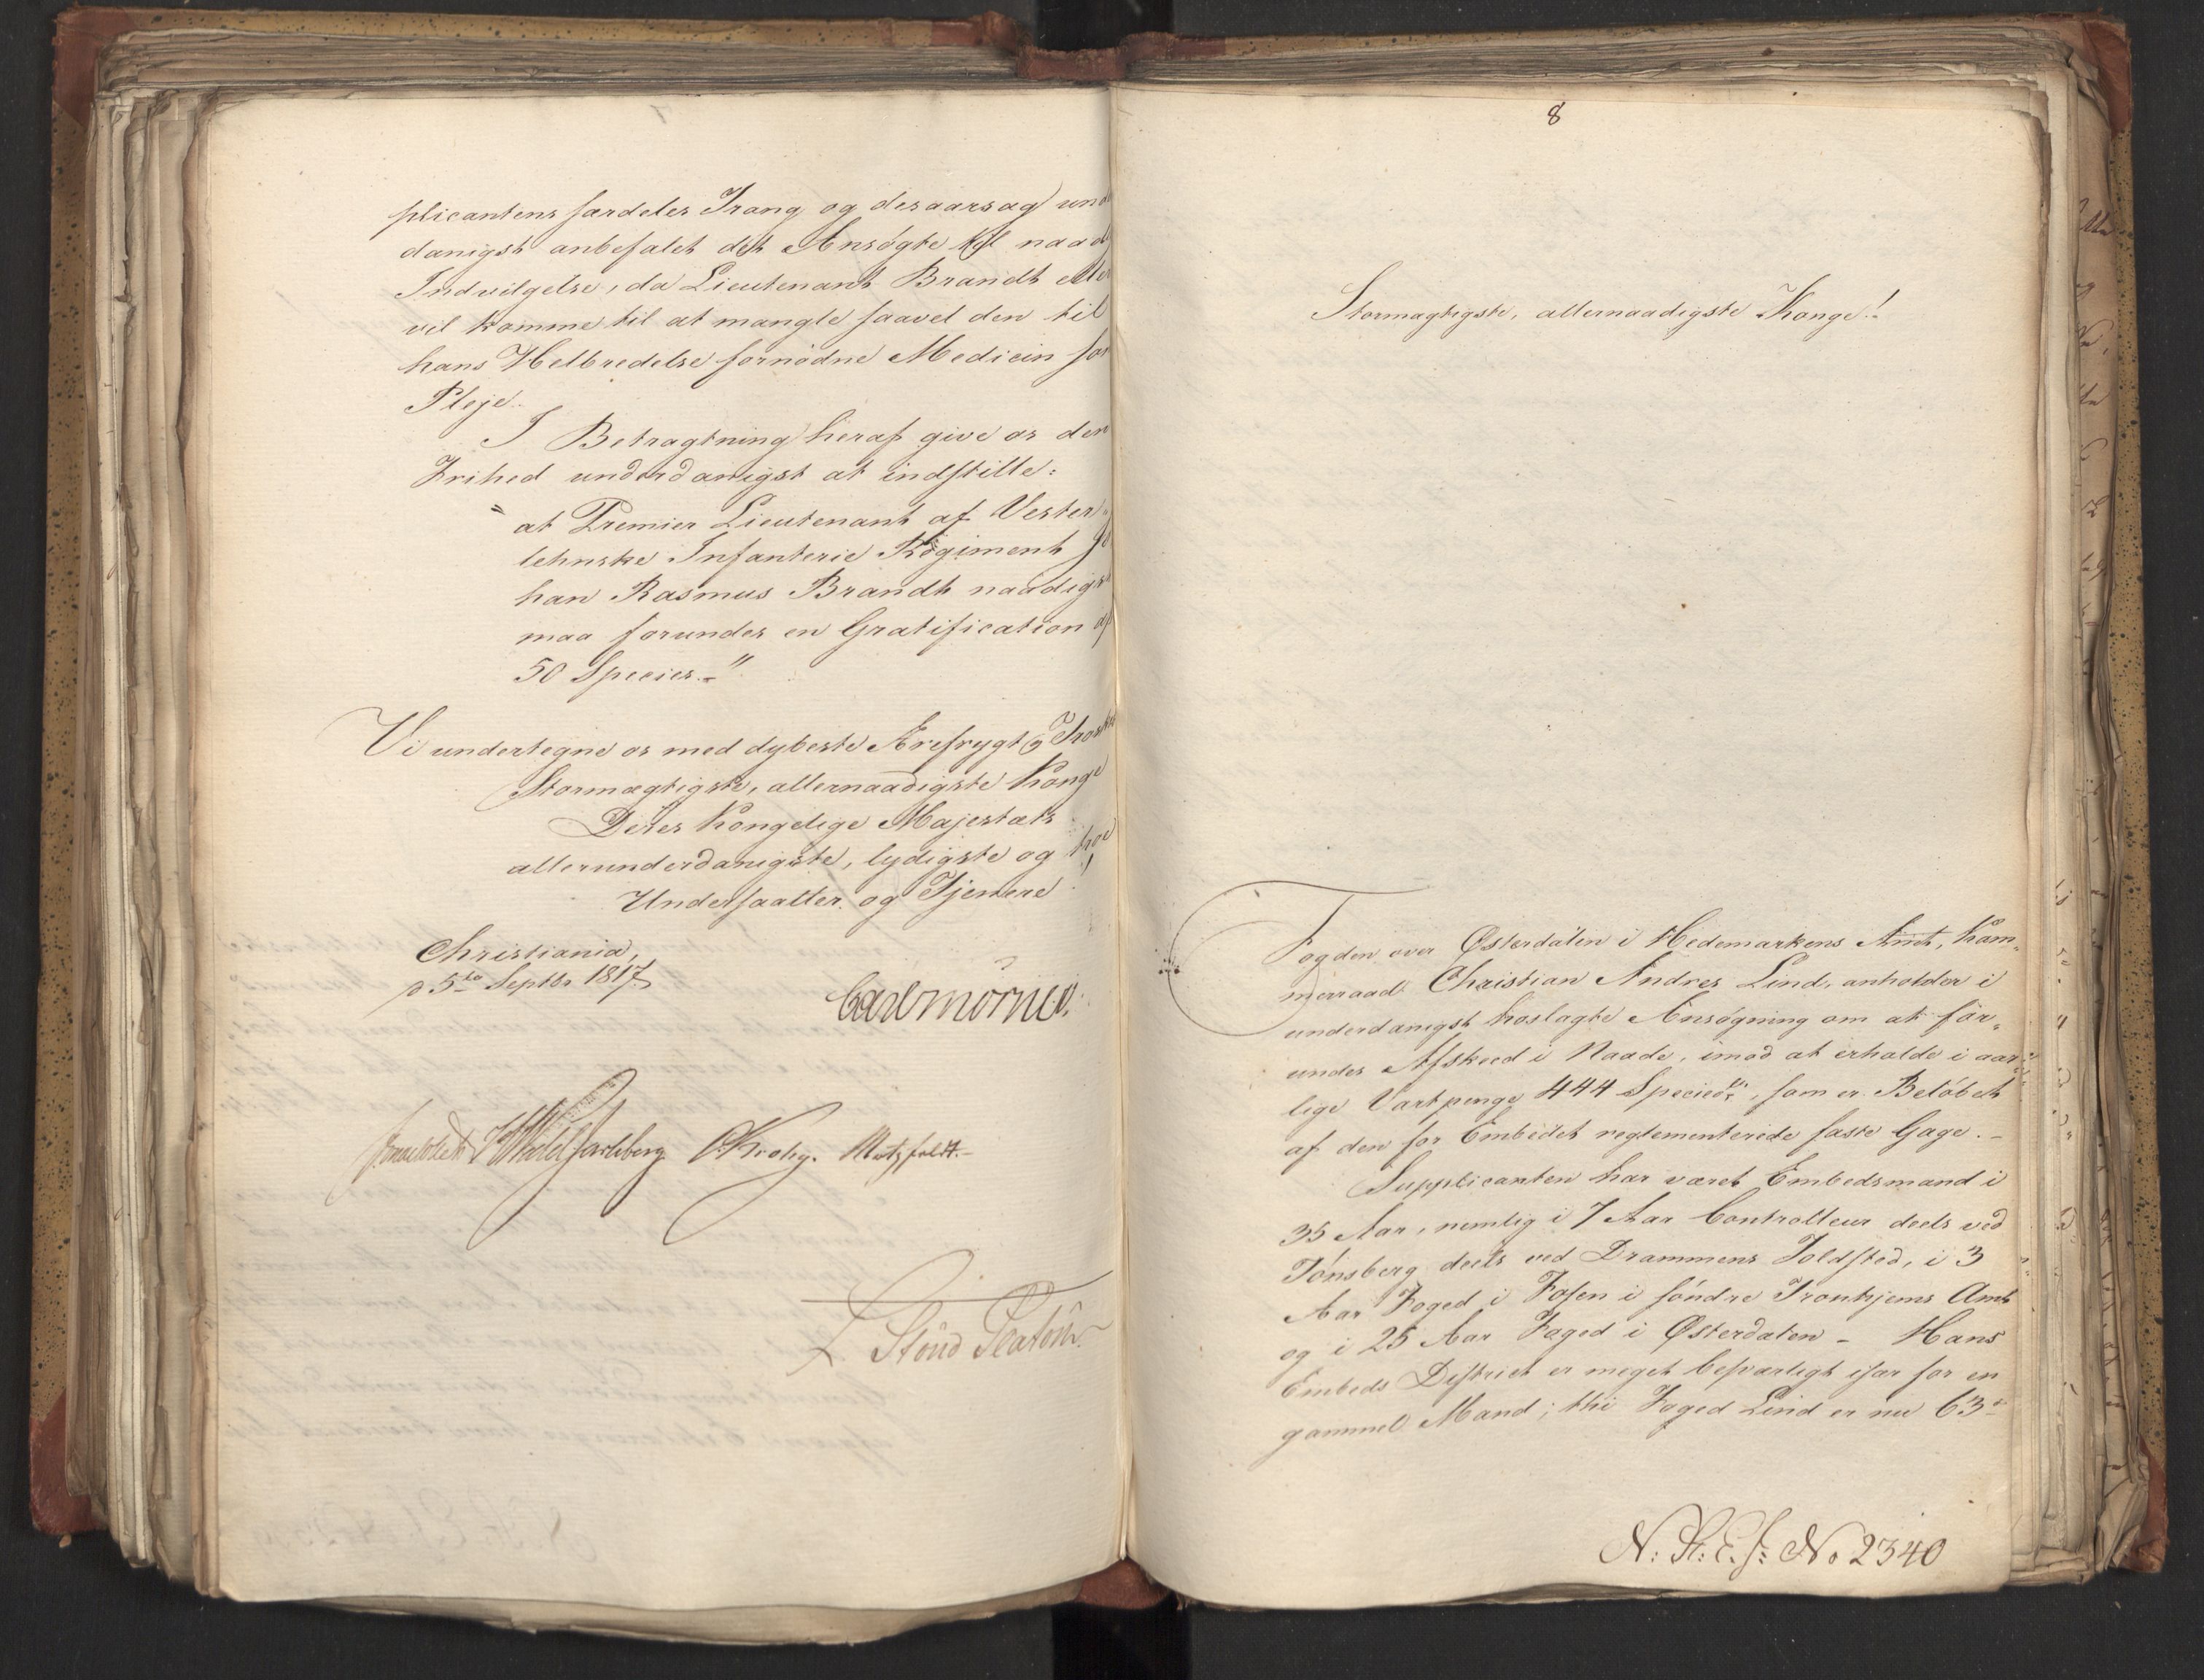 plicantens særdeles Trang og desaarsag und
danigst anbefalet det Ansøgte til naad
Indvilgelse, da Lieutenant Brandt eller
vil komme til at mangle saavel den til
hans Helbredelse fornødne Medicin som
Pleje.
I Betragtning heraf give os den
Frihed underdanigst at indstille:
"at Premier Lieutenant af Vester-
lehnske Infanterie Regiment Jo
han Rasmus Brandt naadigst
maa forundes en Gratification af
50 Species."
Vi undertegne os med dybeste Ærefrygt og Troskab
Stormægtigste, allernaadigste Konge
Deres Kongelige Majestæts
allerunderdanigste, lydigste og troe
Undersaatter og Tjenere
Christiania,
d 5te Septbr 1817
Carl Mörner.
Sommerhielm Wedel Jarlsberg C Krohg. Motzfeldt.
L. Stoud Platou
8
Stormægtigste, allernaadigste Konge!
Fogden over Østerdalen i Hedemarkens Amt, Kam-
merraad Christian Andres Lind, anholder i
underdanigst hoslagte Ansøgning om at for-
undes Afskeed i Naade, imod at erholde i aar-
lige Vartpenge 444 Speciedlr, som er Beløbet
af den for Embedet reglementerede faste Gage.-
Supplicanten har været Embedsmand i
35 Aar, nemlig i 7 Aar Controlleur deels ved
Tønsberg deels ved Drammens Toldsted, i 3
Aar Foged i Fosen i søndre Tronhjems Amt
og i 25 Aar Foged i Østerdalen - Hans
Embeds District er meget besværligt især for en
gammel Mand; thi Foged Lind er nu 63-
N: St: E. J: No 2340